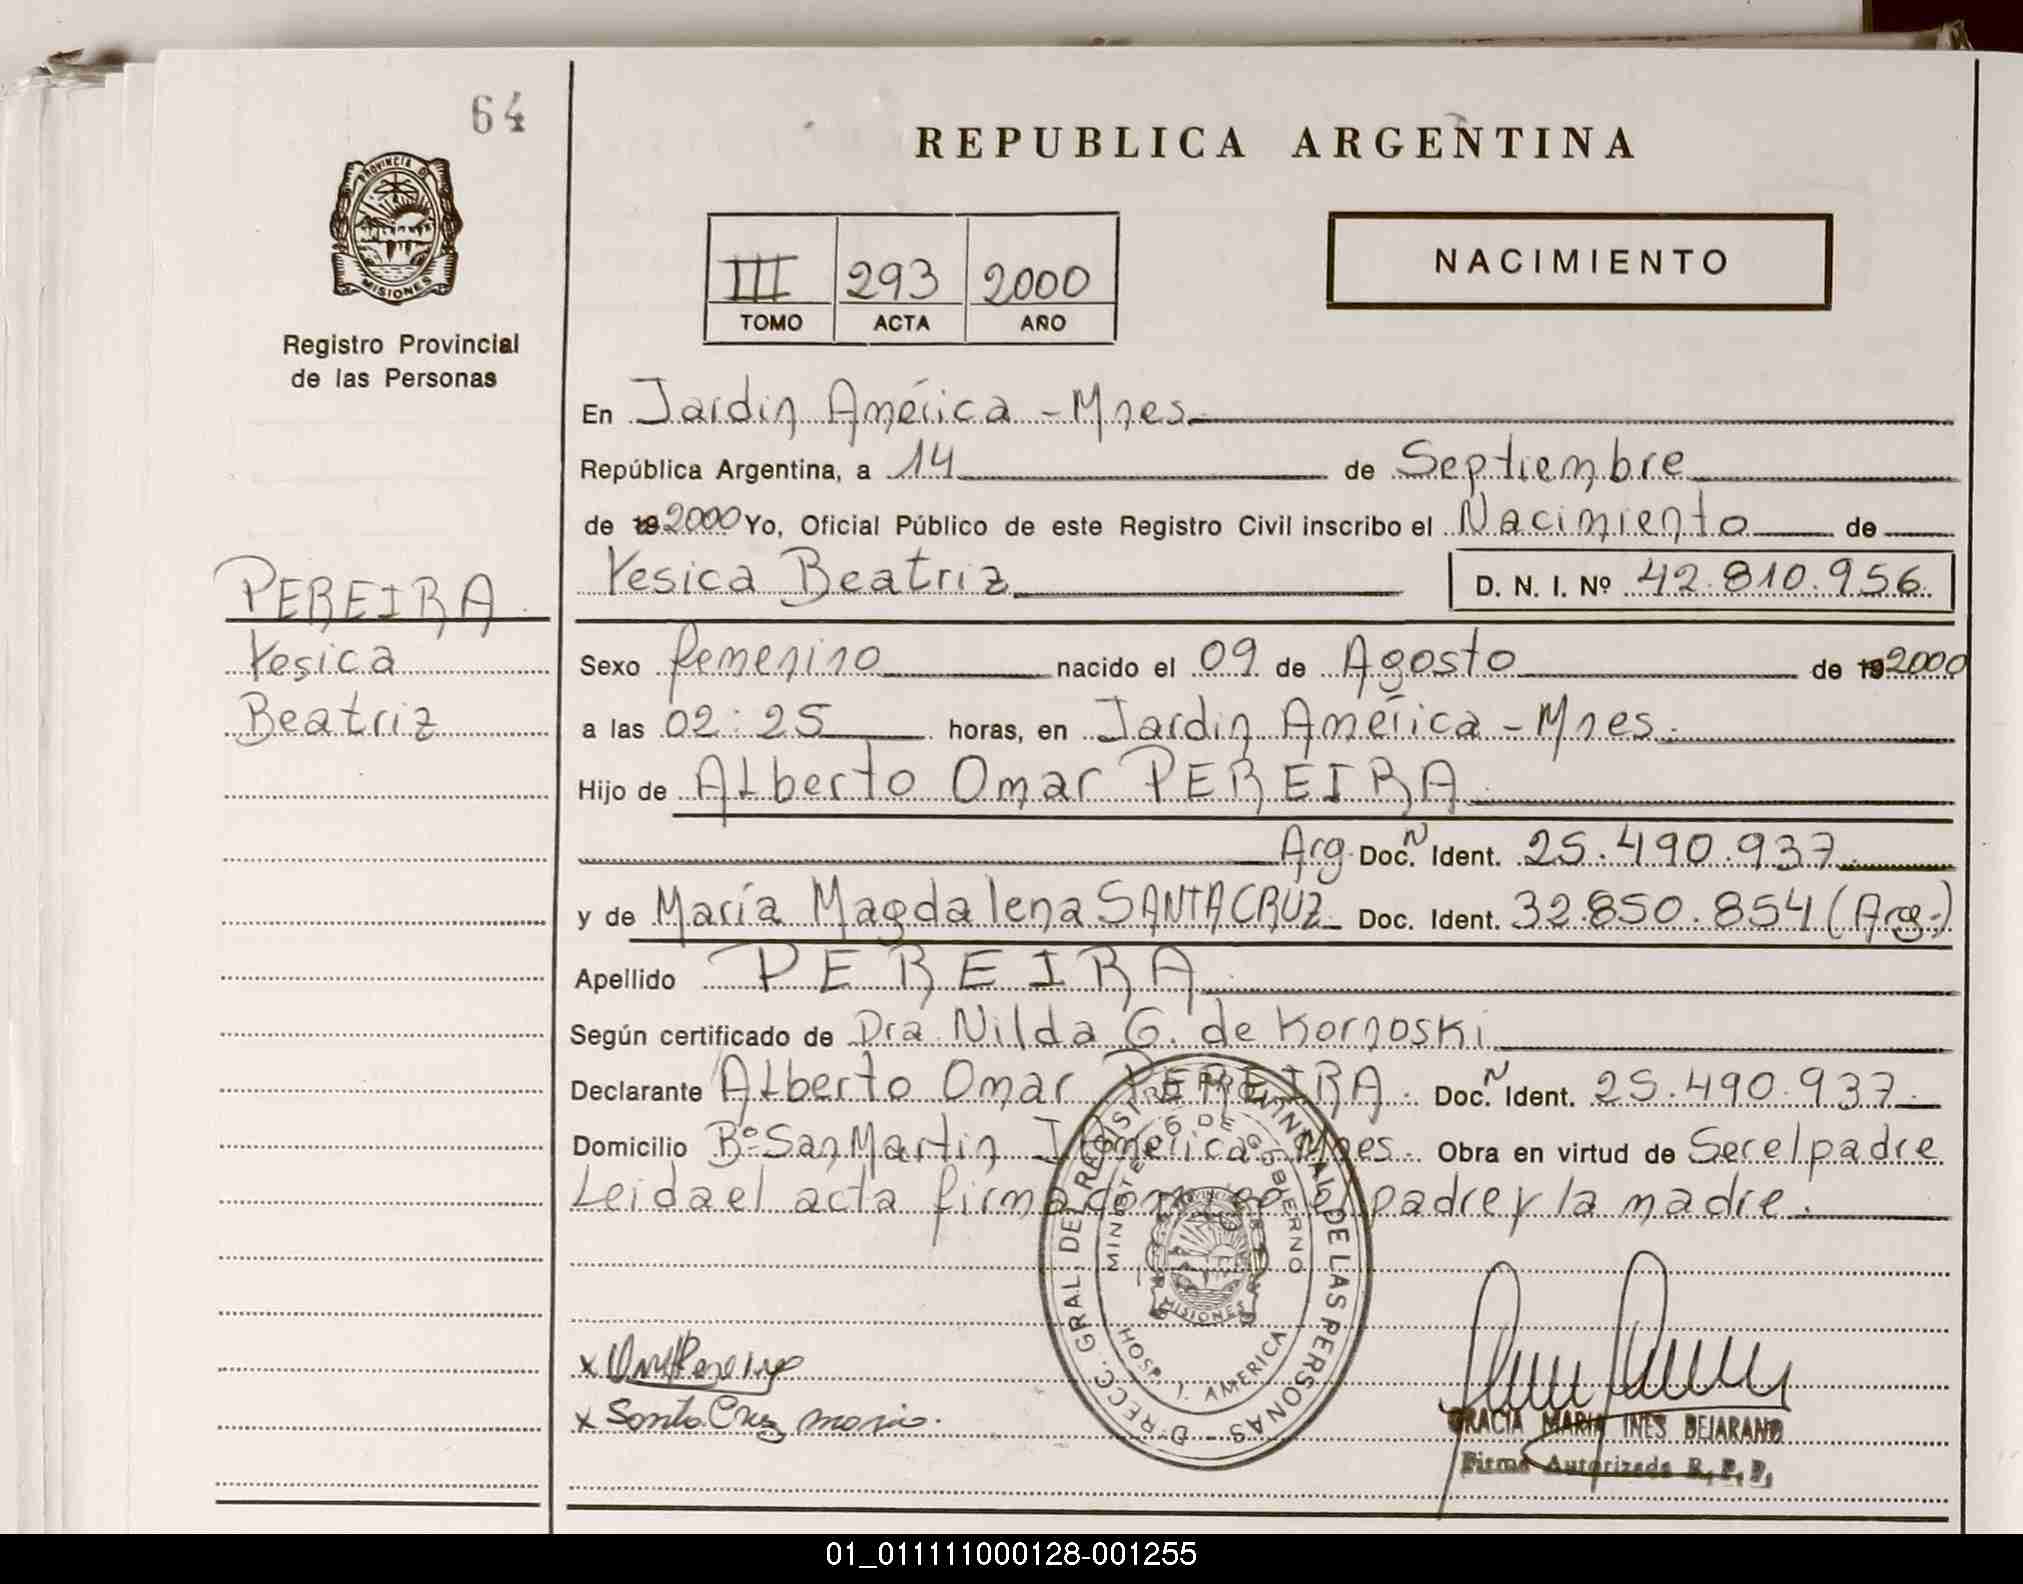 64
REPUBLICA ARGENTINA
PROVINCIA DE
MISIONES
Registro Provincial
de las Personas
III 293 2000
TOMO ACTA AÑO
NACIMIENTO
En Jardín América - Mnes.
República Argentina, a 14 de Septiembre
de 19 2000 Yo, Oficial Público de este Registro Civil inscribo el Nacimiento de
Yesica Beatriz D. N. I. Nº 42.810.956.
PEREIRA
Yesica
Beatriz
Sexo femenino nacido el 09 de Agosto de 19 2000
a las 02:25 horas, en Jardín América - Mnes.
Hijo de Alberto Omar PEREIRA
Arg. Doc. N Ident. 25.490.937.
y de María Magdalena SANTACRUZ Doc. Ident. 32.850.854 (Arg.)
Apellido PEREIRA.
Según certificado de Dra. Nilda G. de Kornoski
Declarante Alberto Omar PEREIRA. Doc. N Ident. 25.490.937.
Domicilio Bº San Martín J. América Mnes. Obra en virtud de Ser el padre
Leida el acta firma conmigo el padre y la madre.
DIRECC. GRAL. DEL REGISTRO PROVINCIAL DE LAS PERSONAS
MINISTERIO DE GOBIERNO
HOSP. J. AMERICA
MISIONES
x
x Santa Cruz maria.
GRACIA MARIA INES BEJARANO
Firma Autorizada R. P. P.
01_011111000128-001255